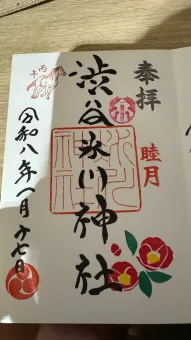 奉拝
睦月
渋谷氷川神社
丙午
令和八年一月十七日